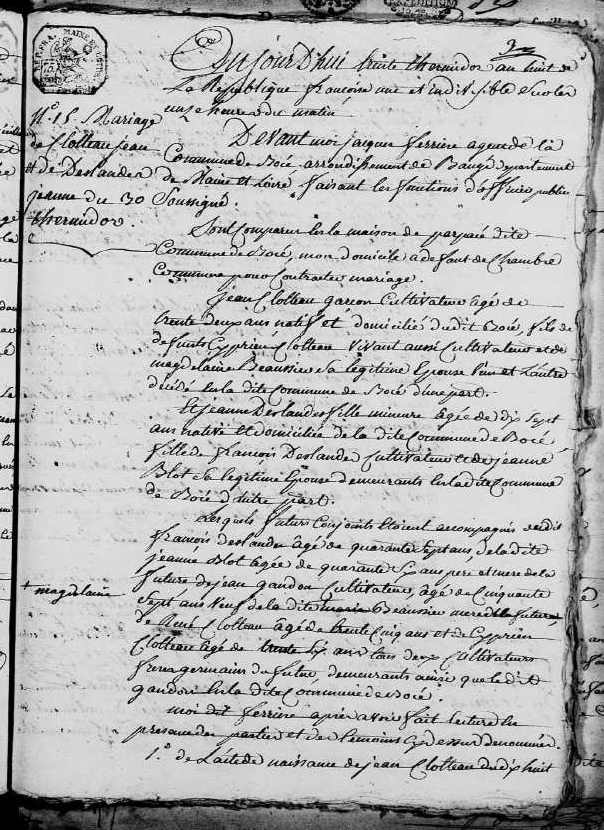 Du jourd'hui trente thermidor an huit de
La Republique francoise une et Indivisible
unze heures du matin
N.º 15. Mariage
de Clotteau jean
et de Deslandes
jeanne du 30
thermidor.
Devant moi jacque ferriere agent de la
Commune de Bocé arrondissement de Baugé departement
de Maine et Loire faisant les fonctions d'officier public
Soussigné.
Sont Comparu en la maison
Commune de Bocé, mon domicile a defaut de Chambre
Commune pour Contracter mariage.
jean Clotteau garcon Cultivateur agé de
trente deux ans natif et domicilié dudit Bocé, fils de
defunts Cyprien Clotteau vivant aussi Cultivateur et de
magdelaine Beaussier sa legitime Epouse l'un et L'autre
décédé en la dite Commune de Bocé d'une part.
Et jeanne Deslandes fille mineure agée de dix sept
ans native et domiciliée de la dite Commune de Bocé
fille de francois Deslandes Cultivateur et de jeanne
Blot sa legitime Epouse demeurants en la dite Commune
de Bocé d'autre part.
Lesquels futurs Conjoints Etoient acompagnés dudit
francois deslandes âgé de quarante sept ans, de la dite
jeanne Blot agée de quarante ans pere et mere de la
future, de jean gandon Cultivateur, âgé de Cinquante
+ magdelaine
sept ans veuf de la dite maria Beaussier mere du futur,
de René Clotteau agé de trente Cinq ans et de Cyprien
Clotteau agé de trente ans tous deux Cultivateurs
freres germains du futur, demeurants ainsi que le dit
gandon en la dite Commune de Bocé.
moi dit ferriere après avoir fait lecture en
presence des parties et des temoins Cydessus denommés.
1.º de L'acte de naissance de jean Clotteau du dix huit